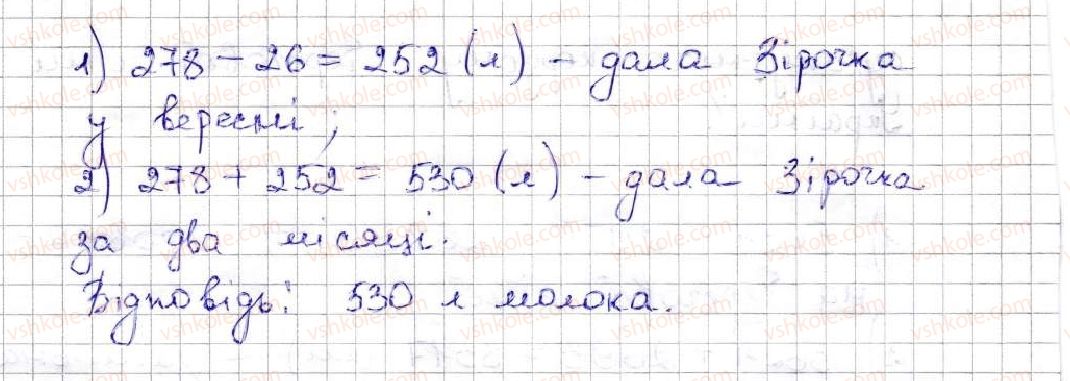 1) 278 - 26 = 252 (л) - дала Зірочка
у вересні;
2) 278 + 252 = 530 (л) - дала Зірочка
за два місяці.
Відповідь: 530 л молока.